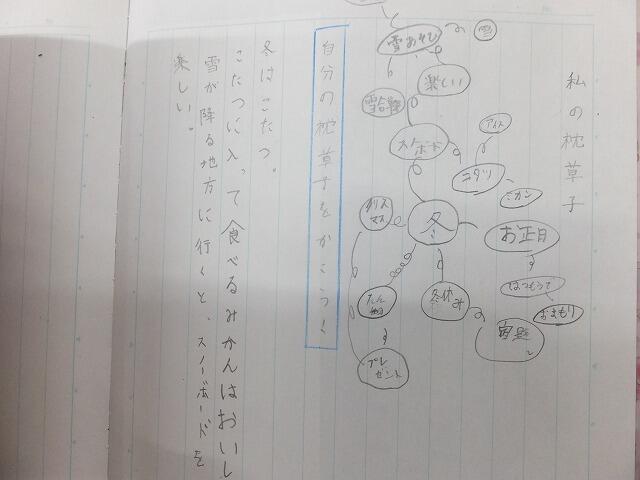 私の枕草子
雪あそび
楽しい
雪合戦
アイス
コタツ
ミカン
冬
お正月
はつもうで
おまもり
宿題
冬休み
クリスマス
プレゼント
自分の枕草子をかこう
冬はこたつ。
こたつに入って食べるみかんはおいし
雪が降る地方に行くと、スノーボードを
楽しい。